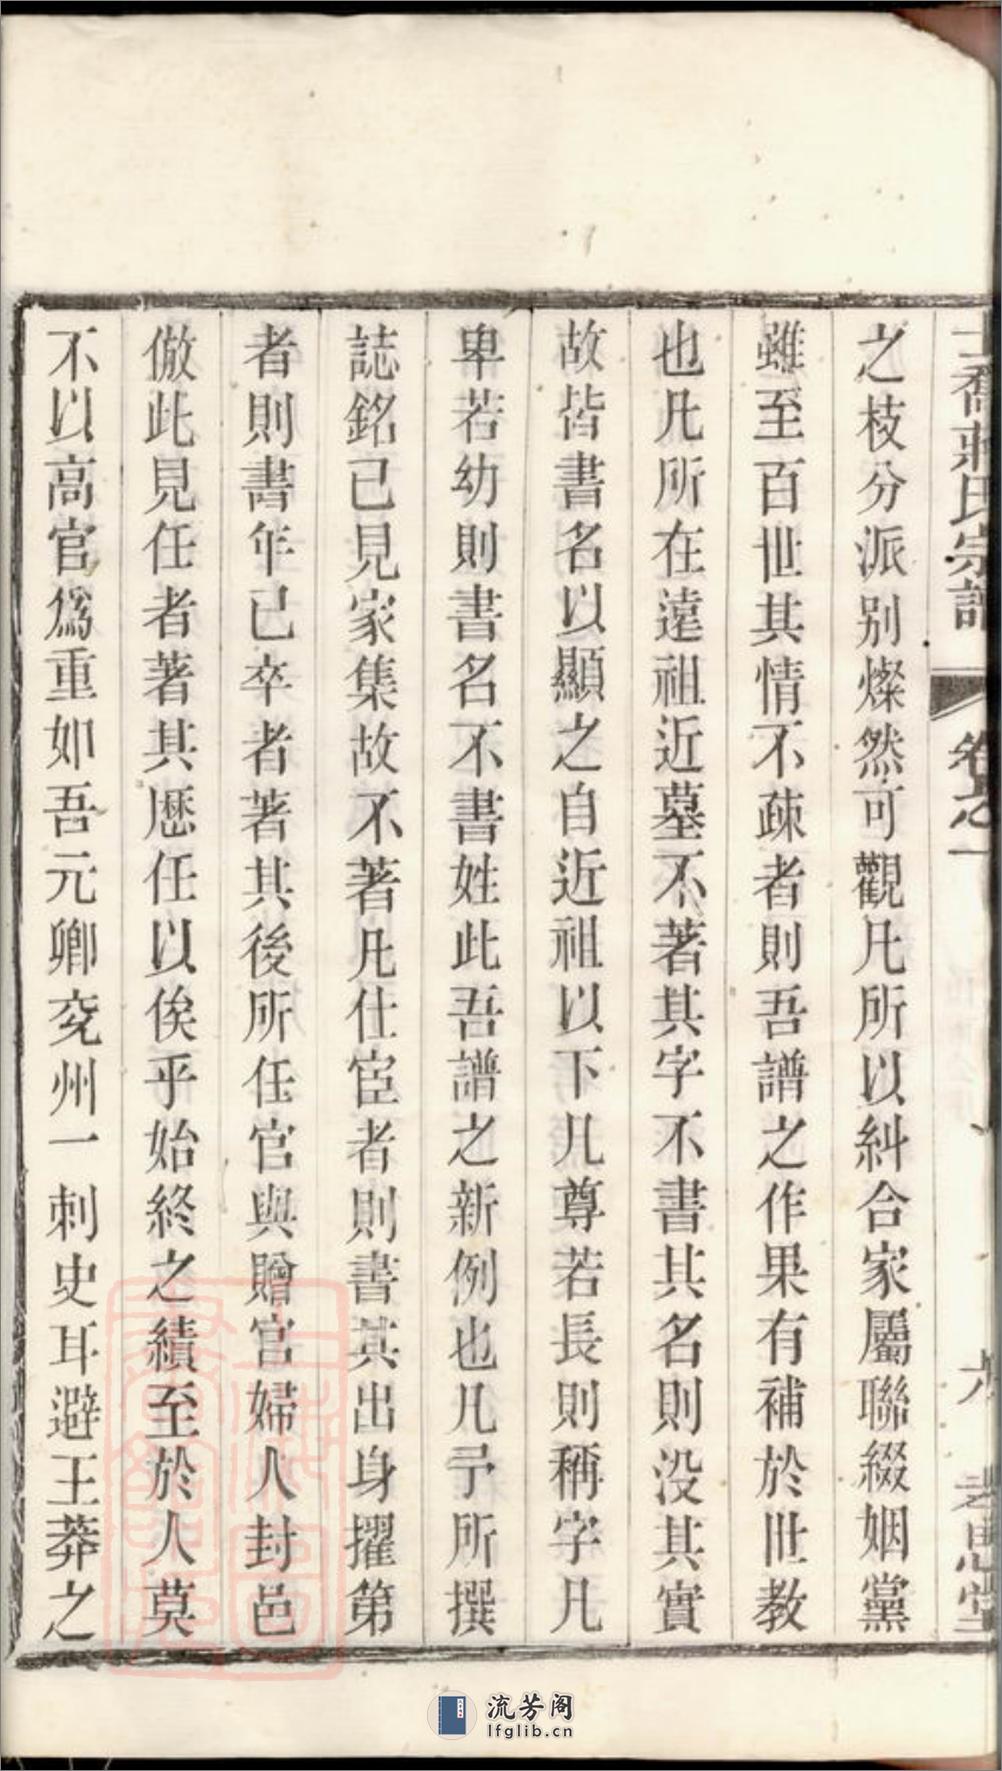 喬蔣氏宗譜 卷之一 孝思堂
之枝分派别燦然可觀凡所以糾合家屬聯綴姻黨
雖至百世其情不疎者則吾譜之作果有補於世教
也凡所在遠祖近墓不著其字不書其名則没其實
故皆書名以顯之自近祖以下凡尊若長則稱字凡
卑若幼則書名不書姓此吾譜之新例也凡予所撰
誌銘已見家集故不著凡仕宦者則書其出身擢第
者則書年已卒者著其後所任官與贈官婦人封邑
倣此見任者著其歴任以俟乎始終之績至於人莫
不以高官爲重如吾元卿兖州一刺史耳避王莽之
流芳阁
lfglib.cn